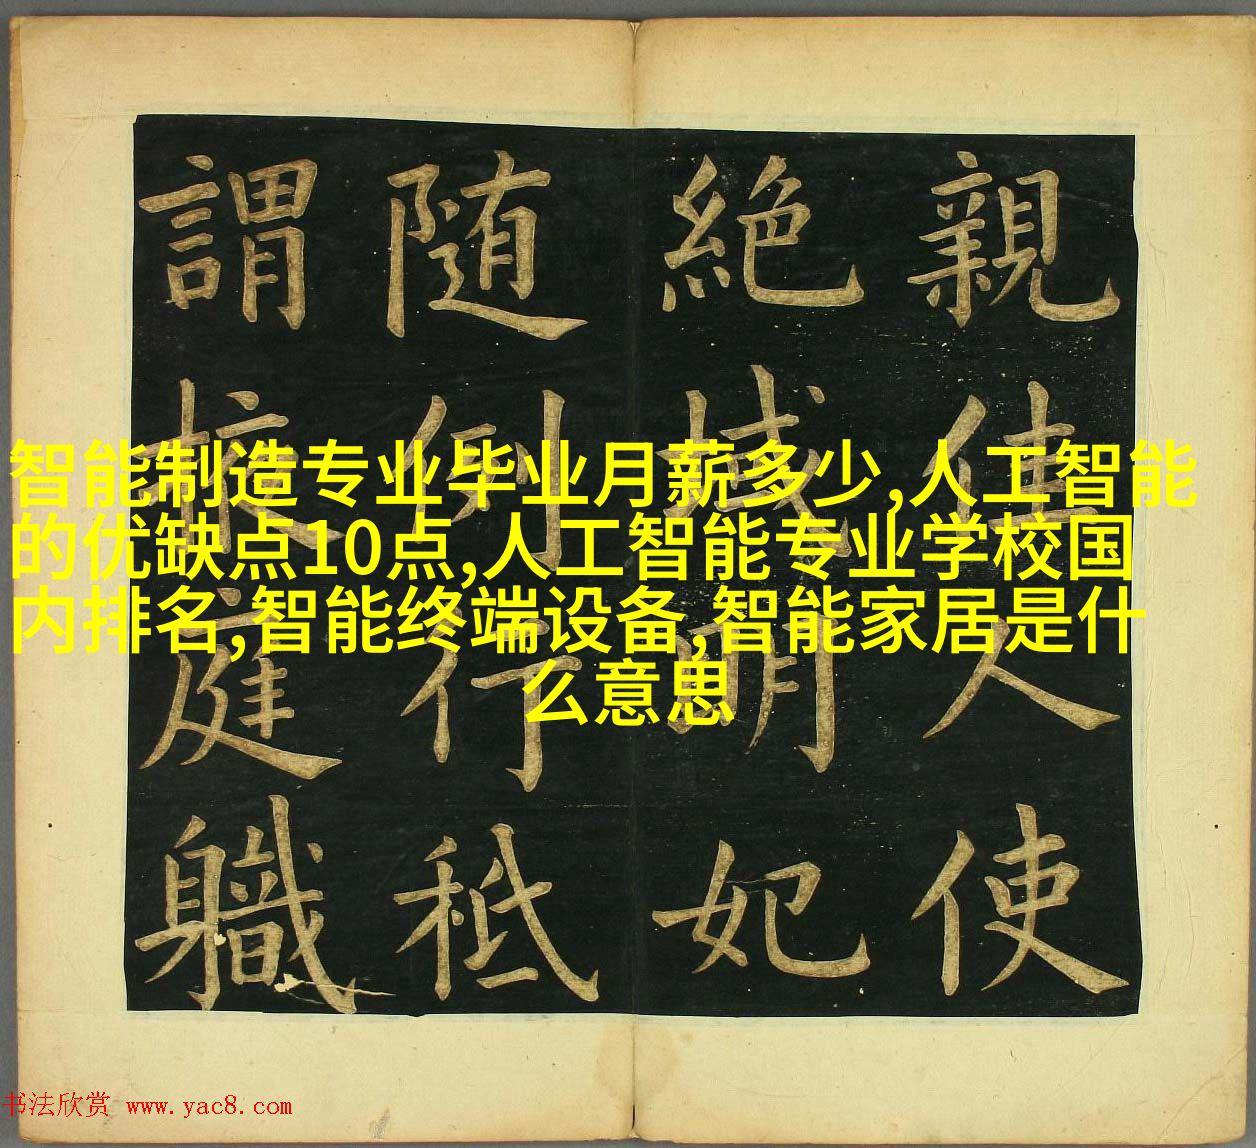 智能制造专业毕业月薪多少,人工智能
的优缺点10点,人工智能专业学校国
内排名,智能终端设备,智能家居是什
么意思
親佳人使
絶域明妃
随例行秪
謂庭軄
书法欣赏 www.yac8.com